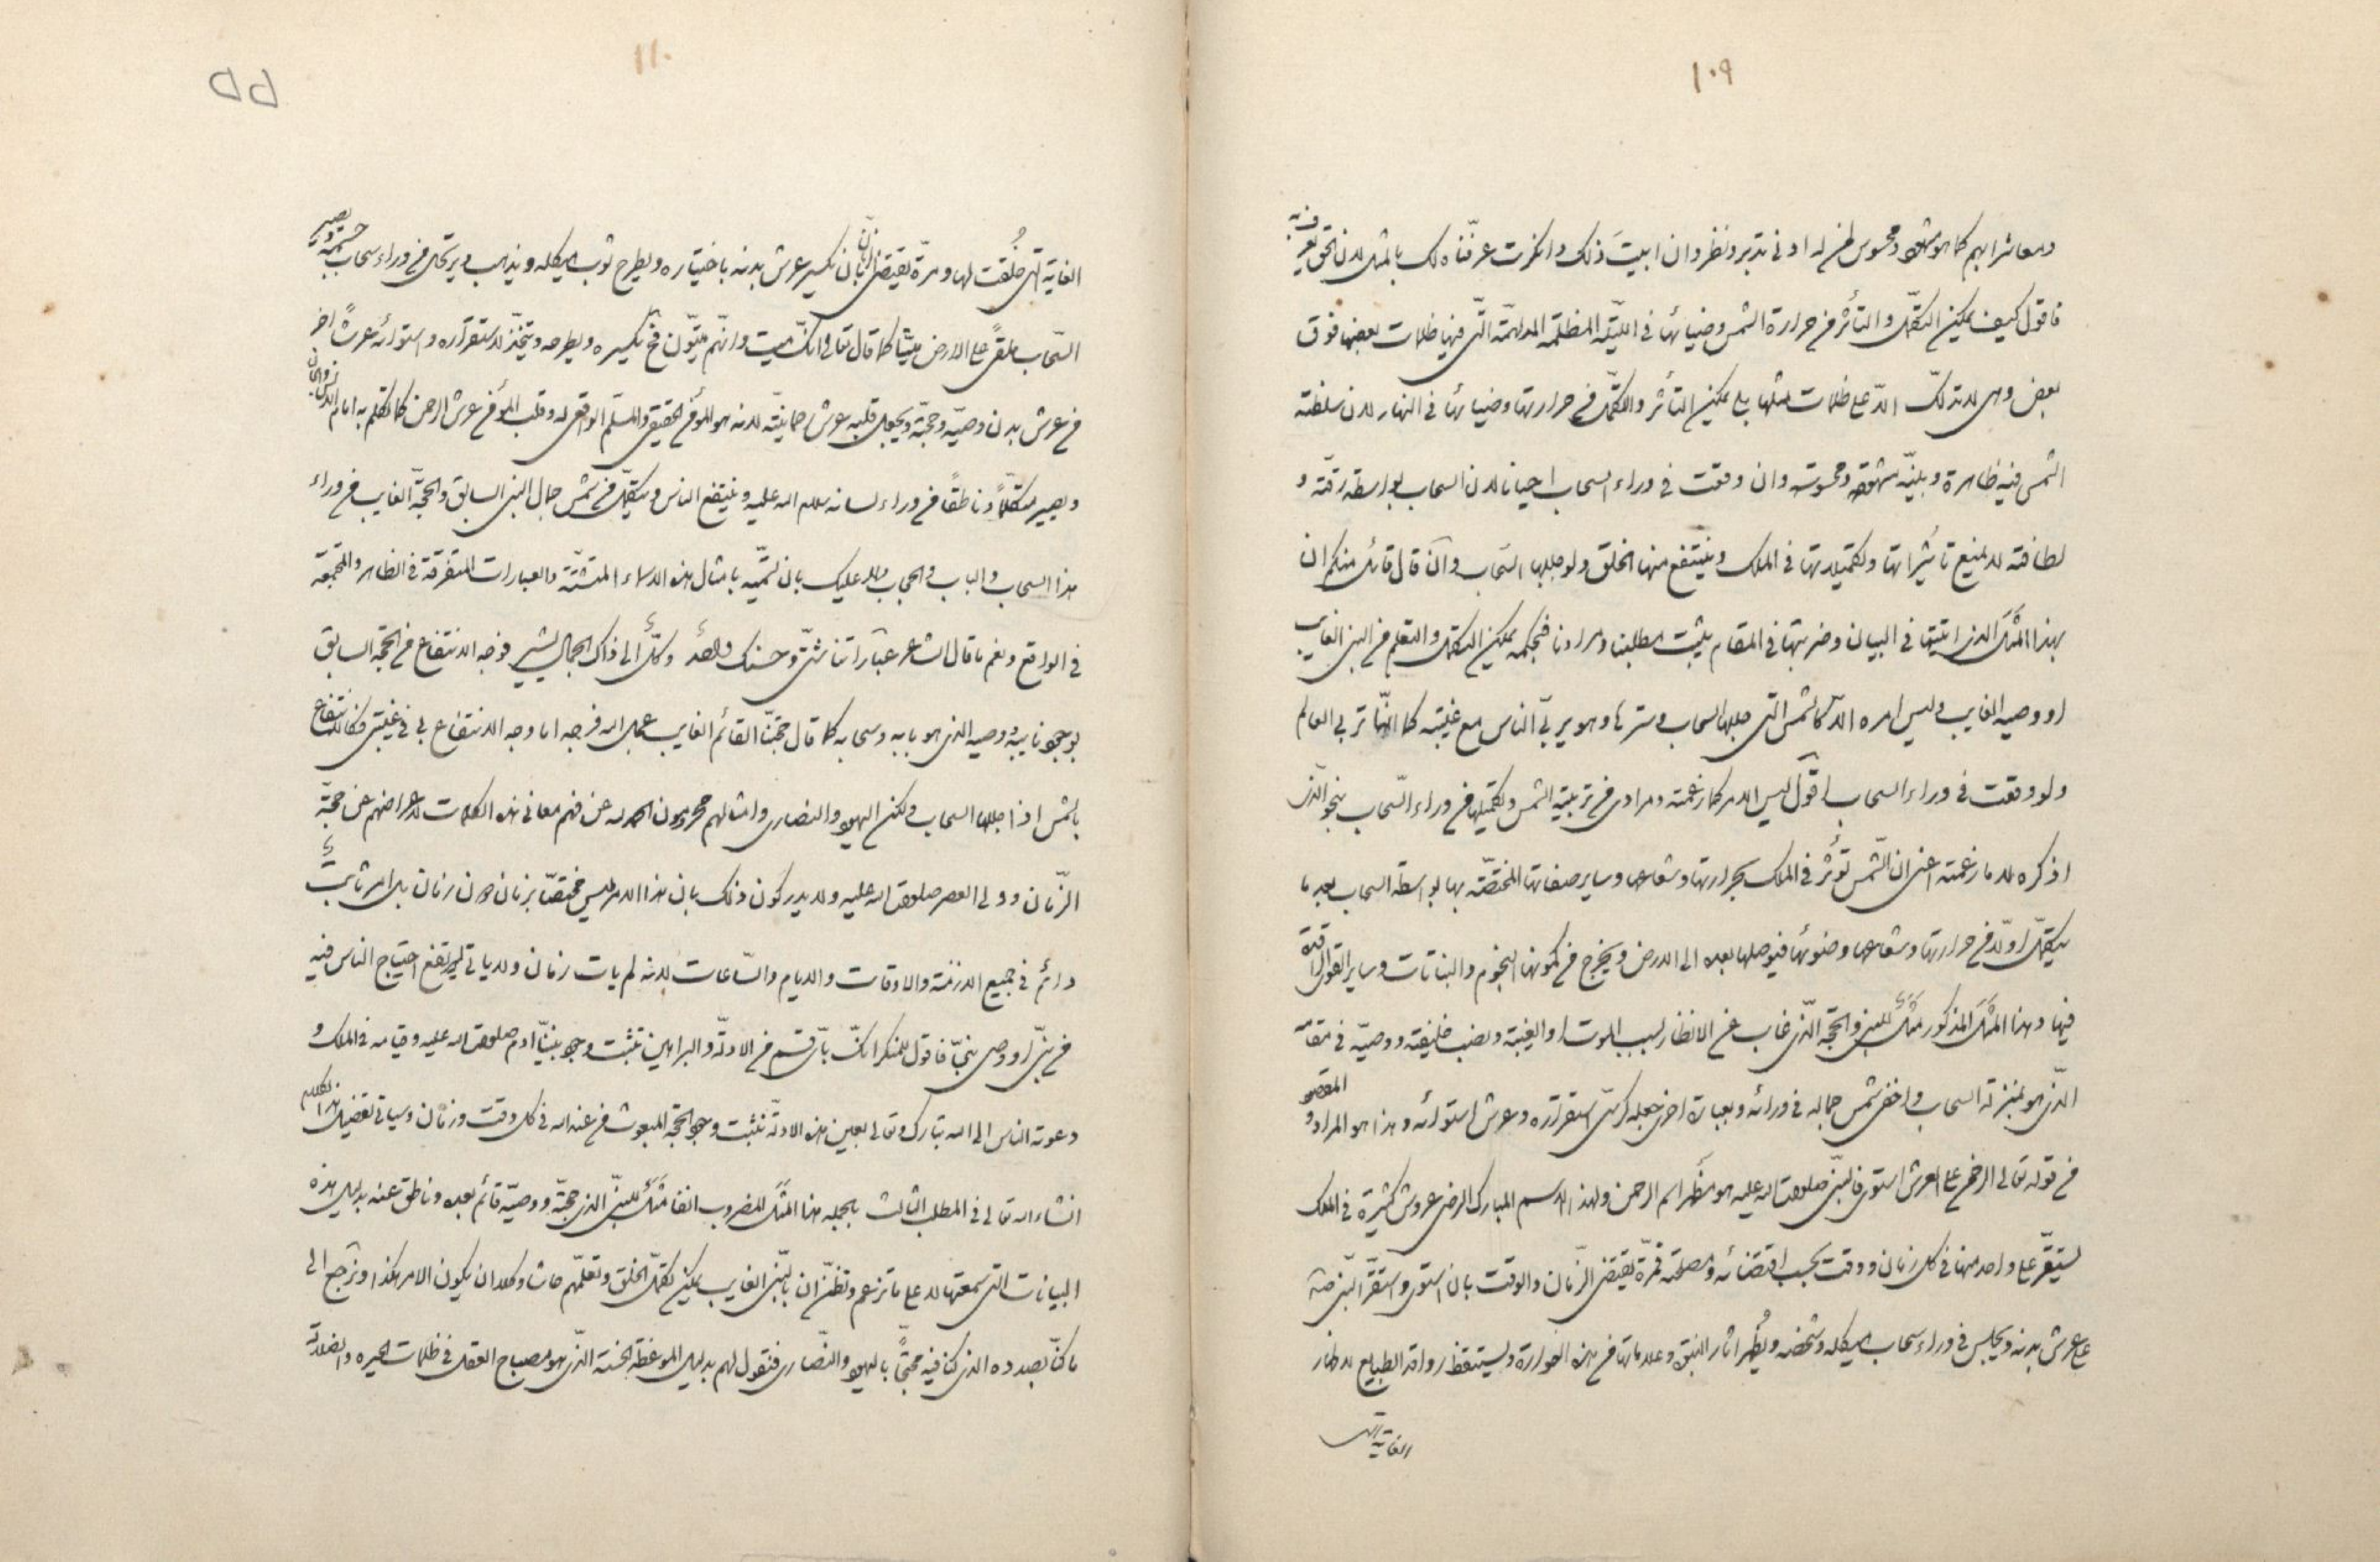 ١٠٩
ومعاشرابهم كما هو مشهود ومحسوس لمن له ادنى تدبر ونظر وان ابيت ذلك وانكرت عرفناه لك بالمثل لان الحق يعرف به
فاقول كيف يمكن التكمل والتأثر من حرارة الشمس وضيائها فى الليلة المظلمة المدلهمة التى فيها ظلمات بعضها فوق
بعض وهى لا تدلك الا على ظلمات مثلها بلى يمكن التأثر والتكمل من حرارتها وضيائها فى النهار لان سلطنة
الشمس فيه ظاهرة وبينة مشهودة ومحسوسة وان وقعت فى وراء السحاب احيانا لان السحاب بواسطة رقته و
لطافته لا يمنع تأثيراتها وتكميلاتها فى الملك وينتفع منها الخلق ولو جللها السحاب وان قال قائل منكم ان
بهذا المثل الذى اتيتها فى البيان وضربتها فى المقام يثبت مطلبنا ومرادنا فبحكمه يمكن التكمل والتعلم من النبى الغايب
او وصيه الغايب وليس امره الا كالشمس التى جللها السحاب وسترها وهو يربى الناس مع غيبته كما انها تربى العالم
ولو وقعت فى وراء السحاب اقول ليس الامر كما زعمته ومرادى من تربية الشمس وتكميلها من وراء السحاب بنحو الذى
اذكره لا ما زعمته اعنى ان الشمس تؤثر فى الملك بحرارتها وشعاعها وساير صفاتها المختصة بها بواسطة السحاب بعد ما
يتكمل اولا من حرارتها وشعاعها وضوئها فيوصلها بعده الى الارض ويخرج من كمونها النجوم والنباتات وساير القوى الراقدة
فيها وهذا المثل المذكور مثل للنبى والحجة الذى غاب عن الانظار بسبب الموت او الغيبة ونصب خليفته ووصيه فى مقامه
الذى هو بمنزلة السحاب واخفى شمس جماله فى ورائه وبعبارة اخرى جعله كرسى استقراره وعرش استوائه وهذا هو المراد و المقصود
من قوله تعالى الرحمن على العرش استوى فالنبى صلوات الله عليه هو مظهر اسم الرحمن ولهذا الاسم المبارك المرضى عروش كثيرة فى الملك
يستقر على واحد منها فى كل زمان ووقت بحسب اقتضائه ومصلحته فمرة يقتضى الزمان والوقت بان استوى واستقر النبى صه
على عرش بدنه ويجلس فى وراء سحاب هيكله وشخصه ويظهر اثار النبوة وعلاماتها من هذه القوارة وليستيقظ رواقد الطبايع لاظهار
الغاية التى
١١٠
٥٥
الغاية التى خلقت لها ومرة يقتضى الزمان بان يكسر عرش بدنه باختياره ويطرح ثوب هيكله ويذهب ويرتحل من وراء سحاب جسمه ويصير
السحاب ملقى على الارض ميتا كما قال تعالى انك ميت وانهم ميتون فح يكسره ويطرحه ويتخذ لاستقراره واستوائه عرشا اخر
من عرش بدن وصيه وحجته ويجعل قلبه عرش رحمانيته لانه هو المؤمن الحقيقى والمسلم الواقعى له وقلب المؤمن عرش الرحمن كما تكلم به امام الانس والجان
ويصير متكلما وناطقا من وراء لسانه سلام الله عليه وينتفع الناس ويتكمل من شمس جمال النبى السابق والحجة الغايب من وراء
هذا السحاب والباب والحجاب ولا عليك بان تسميه بامثال هذه الاسماء المتشتتة والعبارات المتفرقة فى الظاهر والمجتمعة
فى الواقع ونعم ما قال الشاعر عباراتنا شتى وحسنك واحد وكل الى ذاك الجمال يشير فوجه الانتفاع من الحجة السابق
بوجود نايبه ووصيه الذى هو بابه وسحابه كما قال حجتنا القائم الغايب عجل الله فرجه اما وجه الانتفاع بى فى غيبتى فكالانتفاع
بالشمس اذا جللها السحاب ولكن اليهود والنصارى وامثالهم محرومون الحمد لله عن فهم معانى هذه الكلمات لاعراضهم عن حجة
الزمان وولى العصر صلوات الله عليه ولا يدركون ذلك بان هذا الامر ليس مختصا بزمان دون زمان بل امر ثابت
دائم فى جميع الازمنة والاوقات والايام والساعات لانه لم يات زمان ولا ياتى ليرتفع احتياج الناس فيه
من نبى او وصى نبى فاقول للمنكر انك باى قسم من الادلة والبراهين تثبت وجود نبينا ادم صلوات الله عليه وقيامه فى الملك و
دعوته الناس الى الله تبارك وتعالى بعين هذه الادلة نثبت وجود الحجة المبعوث من عند الله فى كل وقت وزمان وسياتى تفضيل هذا الكلام
انشاء الله تعالى فى المطلب الثالث بالجمله هذا المثل المضروب انفا مثل للنبى الذى حجته ووصيه قائم بعده وناطق عنه بدليل هذه
البيانات التى سمعتها لا على ما تزعم وتظن ان بالنبى الغايب يمكن تكمل الخلق وتعلمهم حاشا وكلا ان يكون الامر هكذا ونرجع الى
ما كنا بصدده الذى كنا فيه محتجا باليهود والنصارى فنقول لهم بدليل الموعظة الحسنة الذى هو مصباح العقل فى ظلمات الحيره والضلالة